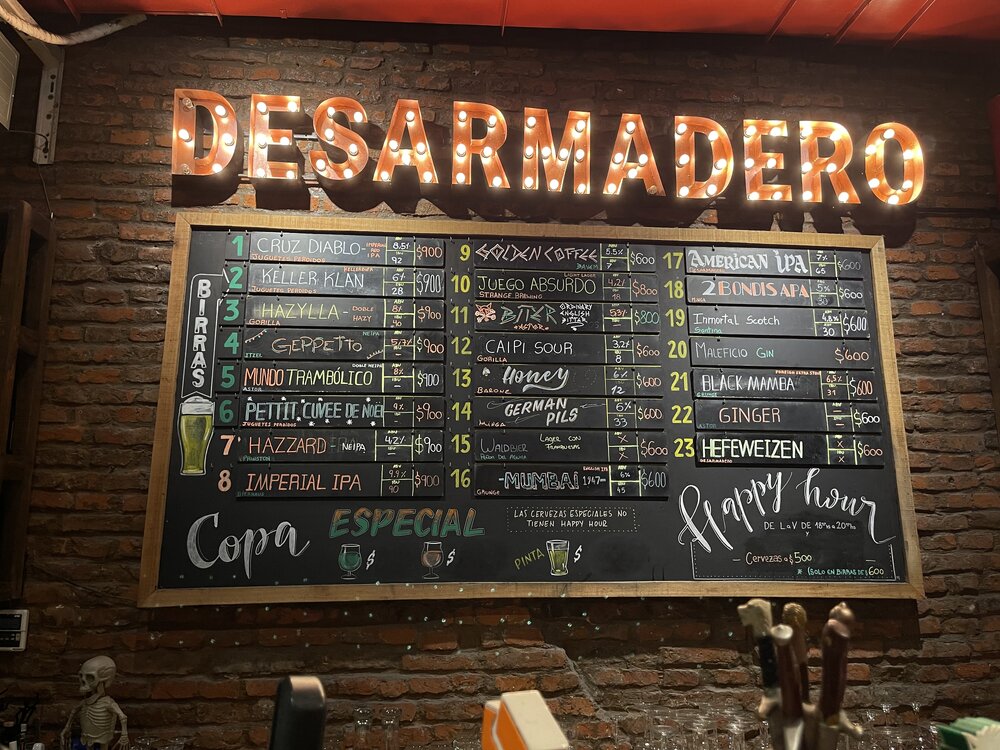 DESARMADERO
BIRRAS
1 CRUZ DIABLO - IMPERIAL RED IPA 8.5% 92 $900
JUGUETES PERDIDOS
2 KELLER KLAN KELLERBIER 6% 28 $900
JUGUETES PERDIDOS
3 HAZYLLA - DOBLE HAZY 8% 40 $900
GORILLA
4 GEPPETTO NEIPA $900
5 MUNDO TRAMBÓLICO DOBLE NEIPA 8% $900
ASTOR
6 PETTIT CUVEE DE NOEL 9% $900
JUGUETES PERDIDOS
7 HAZZARD - NEIPA 42 $900
8 IMPERIAL IPA 9.9% 90 $900
9 GOLDEN COFFEE 5.5% 7 $600
10 JUEGO ABSURDO LIGHT LAGER 4.2% 18 $800
STRANGE BREWING
11 BITER ORDINARY ENGLISH BITTER 5.3% $800
ASTOR
12 CAIPI SOUR 3,2% 8 $600
GORILLA
13 Honey 6% 12 $600
BARONE
14 GERMAN PILS 6% 33 $600
15 WALDBIER LAGER CON FRAMBUESAS X X $600
16 - MUMBAI 1947 - ENGLISH IPA 6% 45 $600
GRUNGE
17 AMERICAN IPA 7% 65 $600
18 2 BONDIS APA 5% 30 $600
19 Inmortal Scotch 4.8% 30 $600
20 MALEFICIO GIN $600
21 BLACK MAMBA FOREIGN EXTRA STOUT 6,5% 31 $600
GRUNGE
22 GINGER $600
ASTOR
23 HEFEWEIZEN X X $600
DESARMADERO
Copa ESPECIAL
$ $
LAS CERVEZAS ESPECIALES NO
TIENEN HAPPY HOUR
PINTA $
Happy hour
DE L a V DE 18hs a 20hs
y
- Cervezas a $500 -
* (SOLO EN BIRRAS DE $600